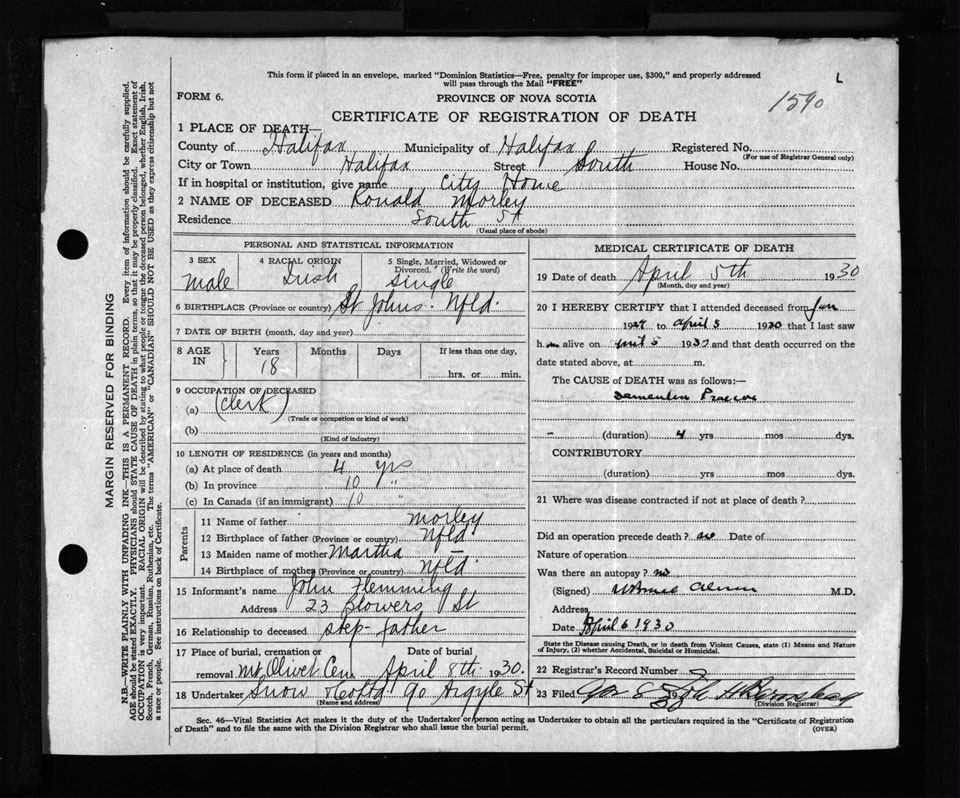 This form if placed in an envelope, marked "Dominion Statistics—Free, penalty for improper use, $300," and properly addressed
will pass through the Mail "FREE"
L
1590
FORM 6.
PROVINCE OF NOVA SCOTIA
CERTIFICATE OF REGISTRATION OF DEATH
1 PLACE OF DEATH—
County of Halifax Municipality of Halifax Registered No.
(For use of Registrar General only)
City or Town Halifax Street South House No.
If in hospital or institution, give name City Home
2 NAME OF DECEASED Ronald Morley
Residence South St
(Usual place of abode)
PERSONAL AND STATISTICAL INFORMATION
3 SEX Male
4 RACIAL ORIGIN Irish
5 Single, Married, Widowed or Divorced. (Write the word) Single
6 BIRTHPLACE (Province or country) St Johns. Nfld.
7 DATE OF BIRTH (month, day and year)
8 AGE IN Years Months Days If less than one day,
18 hrs. or min.
9 OCCUPATION OF DECEASED
(a) (Clerk)
(Trade or occupation or kind of work)
(b)
(Kind of industry)
10 LENGTH OF RESIDENCE (in years and months)
(a) At place of death 4 yrs
(b) In province 10 "
(c) In Canada (if an immigrant) 10 "
Parents
11 Name of father Morley
12 Birthplace of father (Province or country) Nfld
13 Maiden name of mother Martha —
14 Birthplace of mother (Province or country) Nfld.
15 Informant's name John Flemming
Address 23 Blowers St
16 Relationship to deceased step-father
17 Place of burial, cremation or
removal Mt Olivet Cem. April 8th 1930.
18 Undertaker Snow & Co Ltd 90 Argyle St
(Name and address)
MEDICAL CERTIFICATE OF DEATH
19 Date of death April 5th 1930
(Month, day and year)
20 I HEREBY CERTIFY that I attended deceased from Jan
to April 5 1930 that I last saw
h im alive on April 5 1930 and that death occurred on the
date stated above, at m.
The CAUSE of DEATH was as follows:—
Dementia Praecox
(duration) 4 yrs mos dys.
CONTRIBUTORY
(duration) yrs mos dys.
21 Where was disease contracted if not at place of death?
Did an operation precede death? no Date of
Nature of operation
Was there an autopsy? no
(Signed) M.D.
Address
Date April 6 1930
State the Disease causing Death, or in death from Violent Causes, state (1) Means and Nature
of Injury, (2) whether Accidental, Suicidal or Homicidal.
22 Registrar's Record Number
23 Filed
Sec. 46—Vital Statistics Act makes it the duty of the Undertaker or person acting as Undertaker to obtain all the particulars required in the "Certificate of Registration
of Death" and to file the same with the Division Registrar who shall issue the burial permit.
(OVER)
MARGIN RESERVED FOR BINDING
N.B.—WRITE PLAINLY WITH UNFADING INK—THIS IS A PERMANENT RECORD. Every item of information should be carefully supplied.
AGE should be stated EXACTLY. PHYSICIANS should STATE CAUSE OF DEATH in plain terms, so that it may be properly classified. Exact statement of
OCCUPATION is very important. RACIAL ORIGIN will be described by stating to what people or tongue the deceased person belonged, whether English, Irish,
Scotch, French, German, Russian, Ruthenian, etc. The terms "AMERICAN" or "CANADIAN" SHOULD NOT BE USED as they express citizenship but not
a race or people. See instructions on back of Certificate.